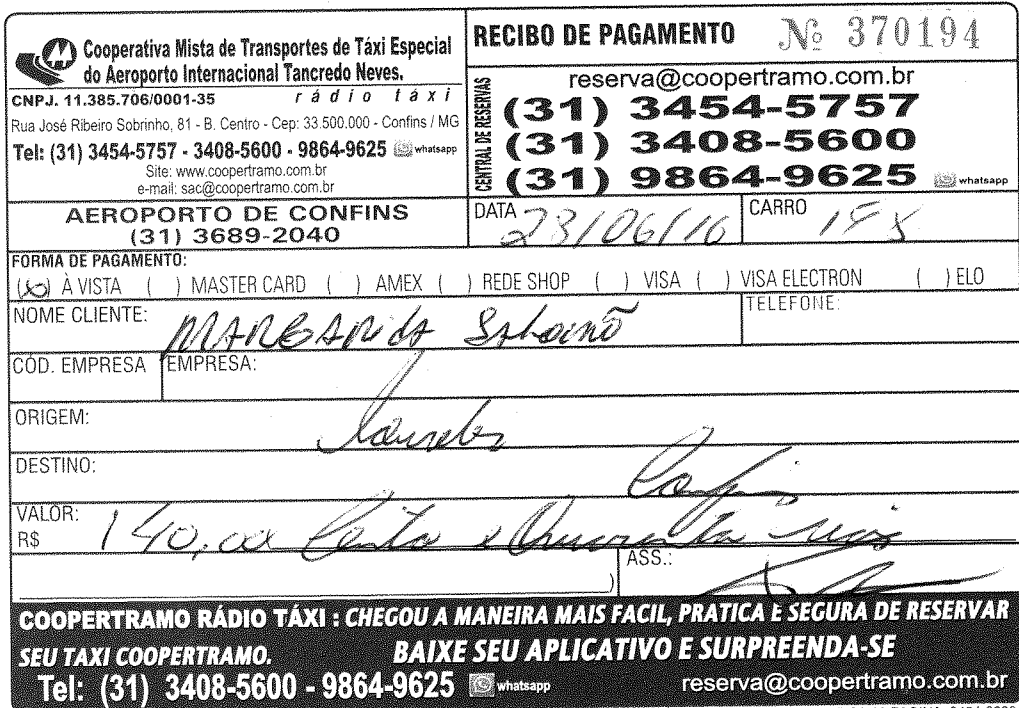 Cooperativa Mista de Transportes de Táxi Especial
do Aeroporto Internacional Tancredo Neves.
CNPJ. 11.385.706/0001-35 rádio táxi
Rua José Ribeiro Sobrinho, 81 - B. Centro - Cep: 33.500.000 - Confins / MG
Tel: (31) 3454-5757 - 3408-5600 - 9864-9625 whatsapp
Site: www.coopertramo.com.br
e-mail: sac@coopertramo.com.br
RECIBO DE PAGAMENTO Nº 370194
CENTRAL DE RESERVAS
reserva@coopertramo.com.br
(31) 3454-5757
(31) 3408-5600
(31) 9864-9625 whatsapp
AEROPORTO DE CONFINS
(31) 3689-2040
DATA 23/06/16
CARRO
FORMA DE PAGAMENTO:
(X) À VISTA ( ) MASTER CARD ( ) AMEX ( ) REDE SHOP ( ) VISA ( ) VISA ELECTRON ( ) ELO
NOME CLIENTE: MARGARIDA
TELEFONE:
CÓD. EMPRESA EMPRESA:
ORIGEM: Lourdes
DESTINO: Confins
VALOR:
R$ 140,00 Cento e Quarenta reais
)
ASS.:
COOPERTRAMO RÁDIO TÁXI : CHEGOU A MANEIRA MAIS FACIL, PRATICA E SEGURA DE RESERVAR
SEU TAXI COOPERTRAMO. BAIXE SEU APLICATIVO E SURPREENDA-SE
Tel: (31) 3408-5600 - 9864-9625 whatsapp reserva@coopertramo.com.br